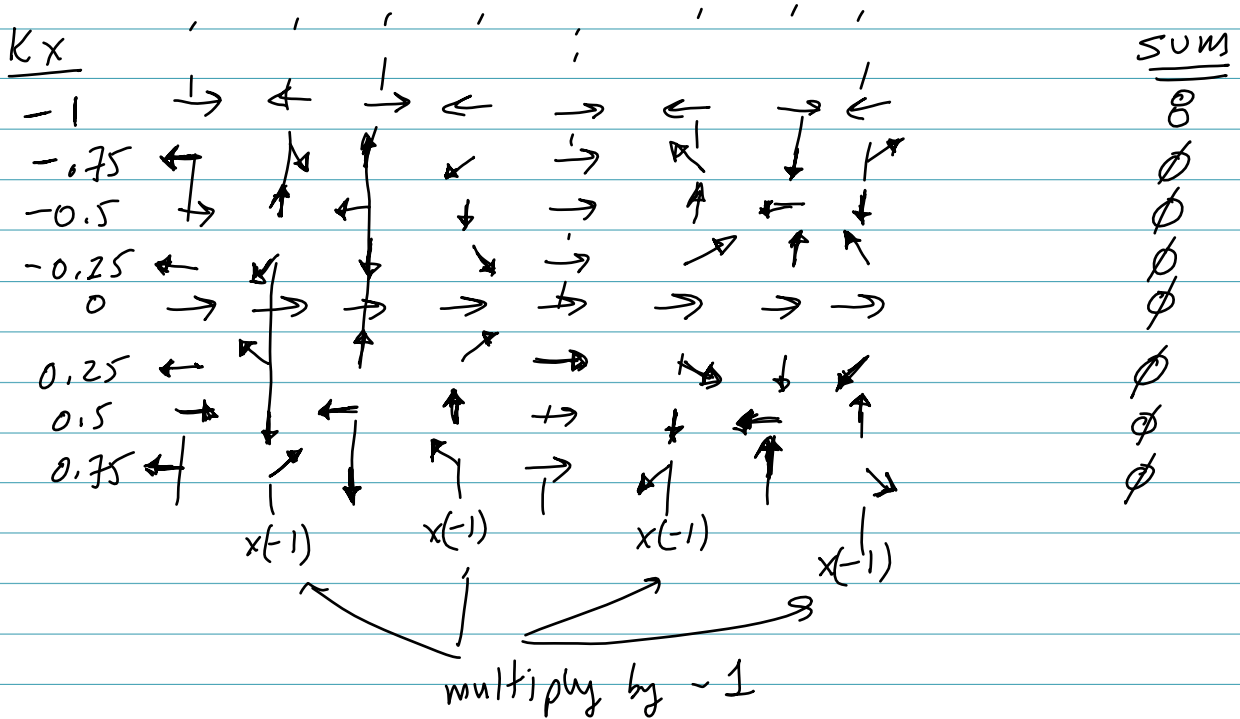 Kx SUM
-1 → ← → ← → ← → ← 8
-.75 ← ↘ ↑ ↙ → ↖ ↓ ↗ ∅
-0.5 → ↑ ← ↓ → ↑ ← ↓ ∅
-0.25 ← ↙ ↓ ↘ → ↗ ↑ ↖ ∅
0 → → → → → → → → ∅
0.25 ← ↖ ↑ ↗ → ↘ ↓ ↙ ∅
0.5 → ↓ ← ↑ → ↓ ← ↑ ∅
0.75 ← ↗ ↓ ↖ → ↙ ↑ ↘ ∅
x(-1) x(-1) x(-1) x(-1)
multiply by -1